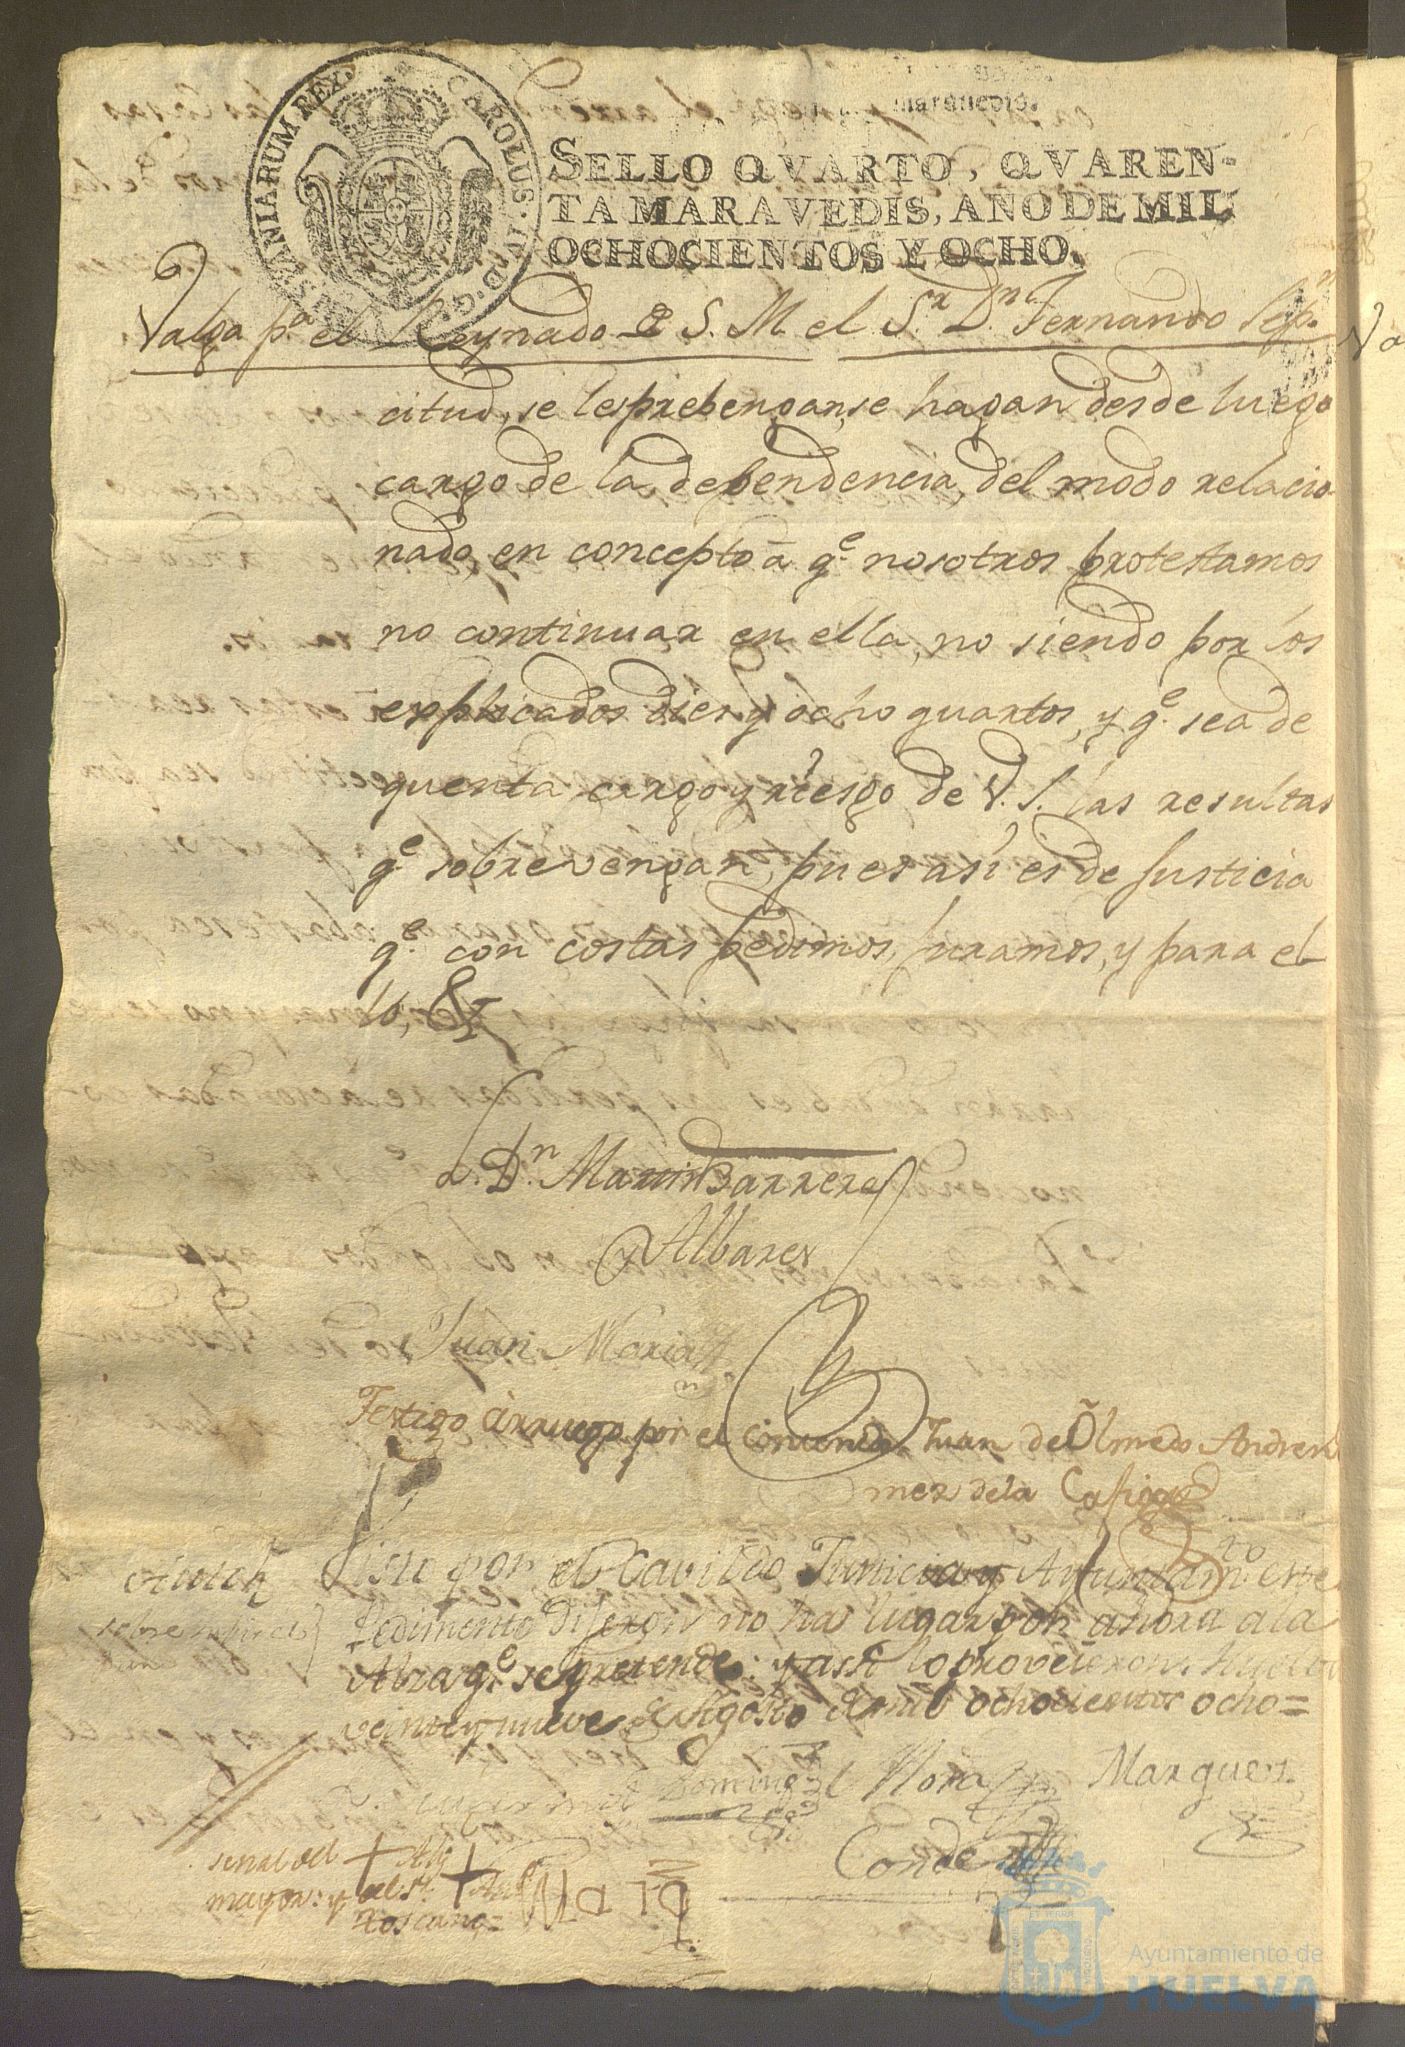 maravedis.
CAROLUS·IV·D·G· HISPANIARUM REX.
SELLO QVARTO, QVAREN-
TA MARAVEDIS, AÑO DE MIL
OCHOCIENTOS Y OCHO.
Valga p.a el Reynado de S. M. el S.r D.n Fernando Sep.mo
citud, se les prebengan, se hagan desde luego
cargo de la dependencia, del modo relacio-
nado, en concepto à q.e nosotros protestamos
no continuar en ella, no siendo por los
explicados diez y ocho quartos, y q.e sea de
quenta cargo y riesgo de V. S. las resultas
q.e sobrevengan, pues asi es de Justicia
q.e con costas pedimos, juramos, y para el-
lo, &
D.n Martin Barrera
y Albarez
Juan Maria
Testigo à ruego por el Contenido Juan de Olmedo Andres
mez de la
Visto por el Cavildo Justicia y Ayuntam.to este
Pedimento Dijeron no ha lugar por ahora a la
Alza q.e se pretende: y assi lo proveieron. Huelva
veinte y nueve de Agosto de mil ochocientos ocho=
Mora
Marquez
Conde
señal del + Alg.
mayor: y del s.r + Ant.o
Toscano=
Ayuntamiento de
HUELVA